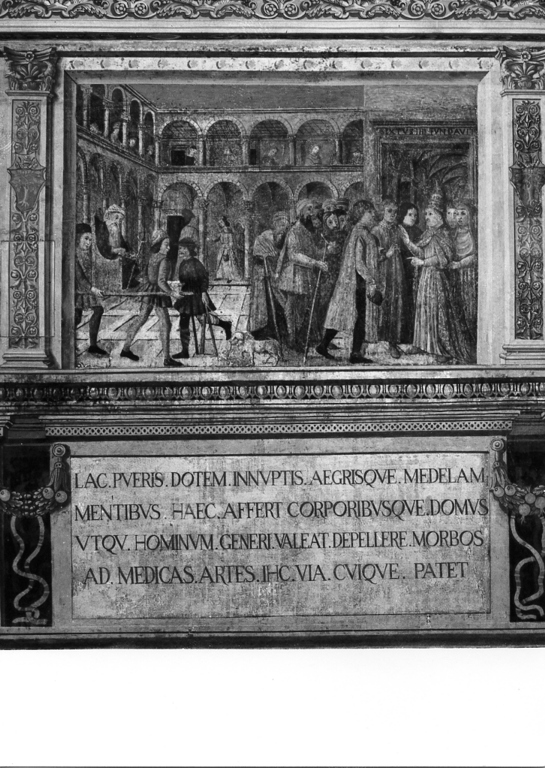 LAC. PVERIS. DOTEM. INNVPTIS. AEGRISQVE. MEDELAM
MENTIBVS HAEC. AFFERT CORPORIBVSQVE. DOMVS
VTQV. HOMINVM. GENERI. VALEAT. DEPELLERE. MORBOS
AD. MEDICAS. ARTES. IHC. VIA. CVIQVE. PATET